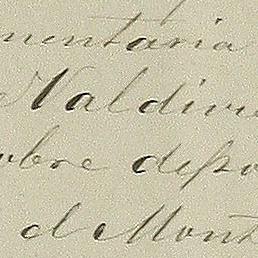 mentaria
Valdivie
mbre depo
el Mont